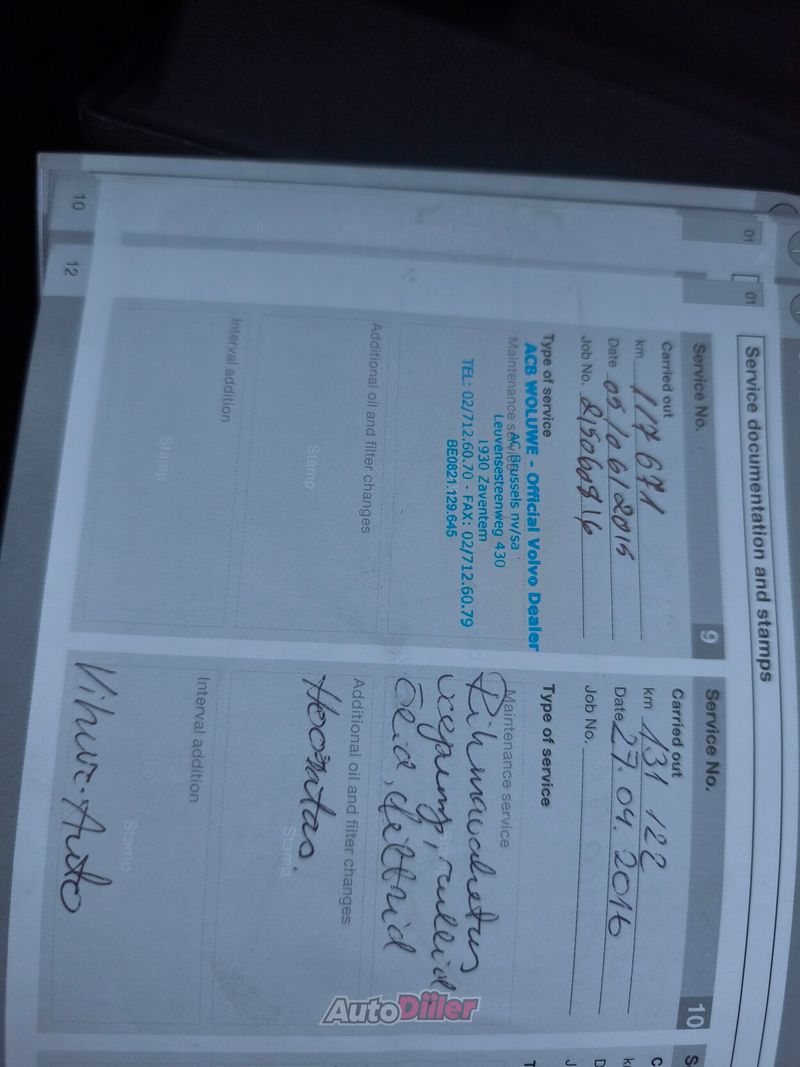 10
12
01
01
Service documentation and stamps
Service No. 9
Carried out
km 117 671
Date 05/06/2015
Job No.
Type of service
Maintenance service
ACB WOLUWE - Official Volvo Dealer
AC Brussels nv/sa
Leuvensesteenweg 430
1930 Zaventem
TEL: 02/712.60.70 - FAX: 02/712.60.79
BE0821.129.645
Additional oil and filter changes
Stamp
Interval addition
Stamp
Service No. 10
Carried out
km 131 122
Date 27.04.2016
Job No.
Type of service
Maintenance service
Rihmavahetus
veepump, rullid
õlid, filtrid
Additional oil and filter changes
Hooratas.
Stamp
Interval addition
Stamp
Vihur-Auto
AutoDiiler